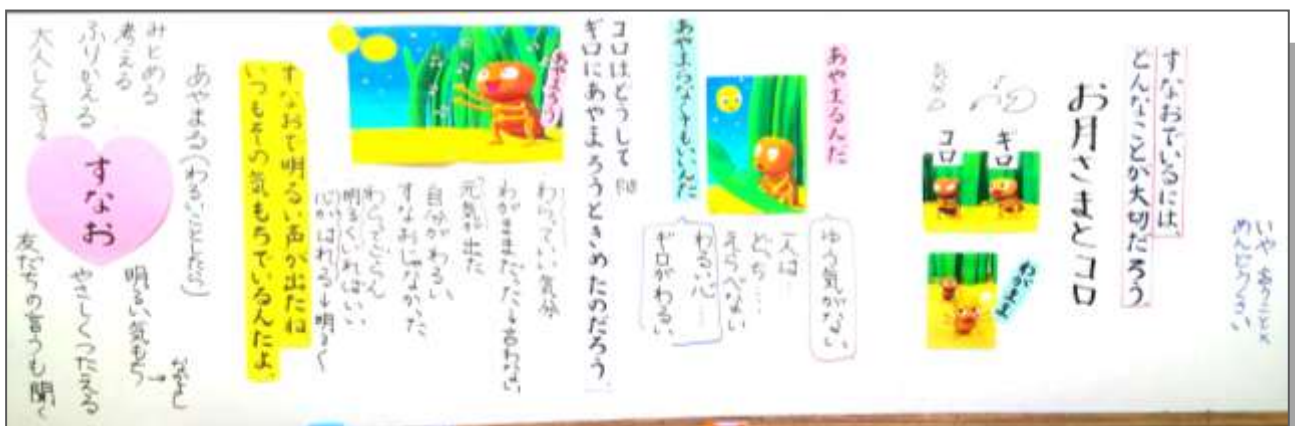 いや
めんどうくさい
すなおでいるには、
どんなことが大切だろう
お月さまとコロ
ギロ
コロ
わがまま
あやまるんだ
あやまらなくてもいいんだ
ゆう気がない
どっち…
えらべない
わるい心…
ギロがわるい
コロはどうして
ギロにあやまろうときめたのだろう。
あやまろう
わらっていい気分
わがままだった→言わない
元気が出た
自分がわるい
すなおじゃなかった
わらってごらん
明るくいればいい
心がはれる→明るく
すなおで明るい声が出たね
いつもその気もちでいるんだよ。
あやまる(わるいことしたら)
みとめる
考える
ふりかえる
大人しくする
すなお
なかよし
明るい気もち→
やさしくつたえる
友だちの言うも聞く